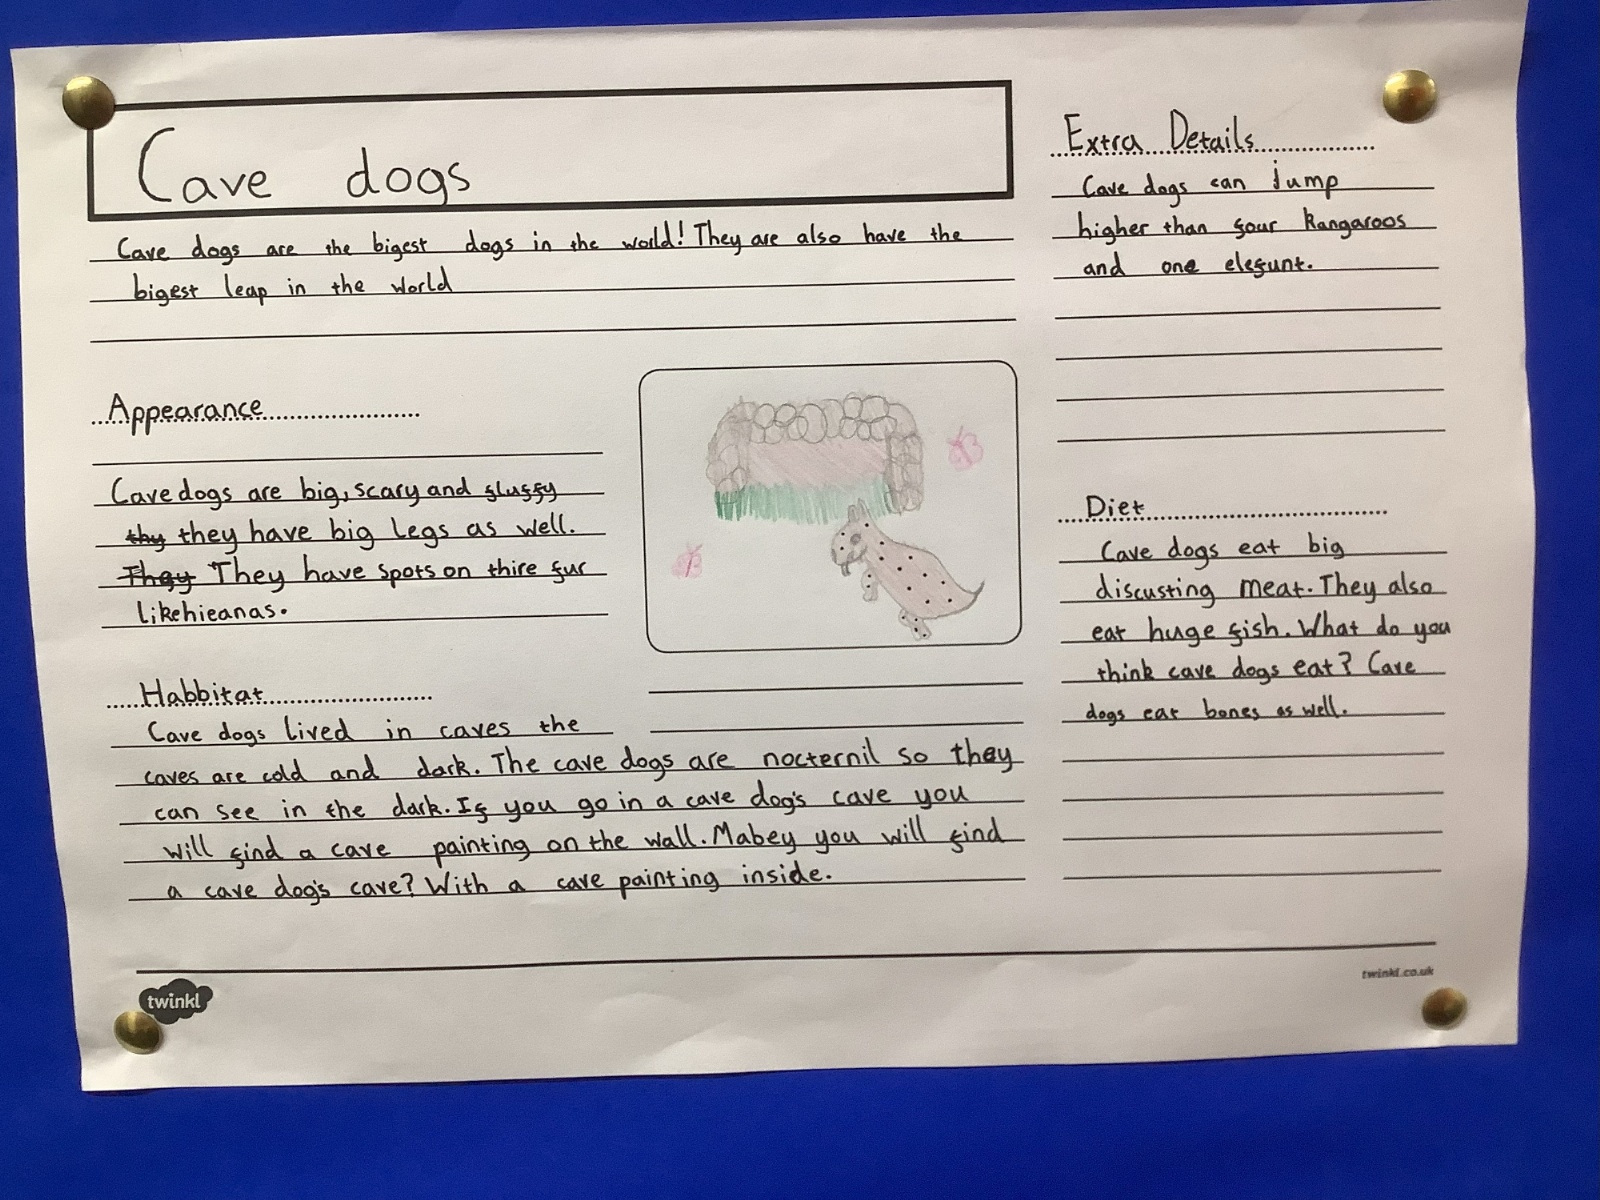 Cave dogs
Cave dogs are the bigest dogs in the world! They are also have the
bigest leap in the world
Appearance
Cave dogs are big, scary and fluffy
thy they have big legs as well.
They They have spots on thire fur
like hieanas.
Habbitat
Cave dogs lived in caves the
caves are cold and dark. The cave dogs are nocternil so they
can see in the dark. If you go in a cave dog's cave you
will find a cave painting on the wall. Mabey you will find
a cave dog's cave? With a cave painting inside.
Extra Details
Cave dogs can jump
higher than four kangaroos
and one elefunt.
Diet
Cave dogs eat big
discusting meat. They also
eat huge fish. What do you
think cave dogs eat? Cave
dogs eat bones as well.
twinkl
twinkl.co.uk